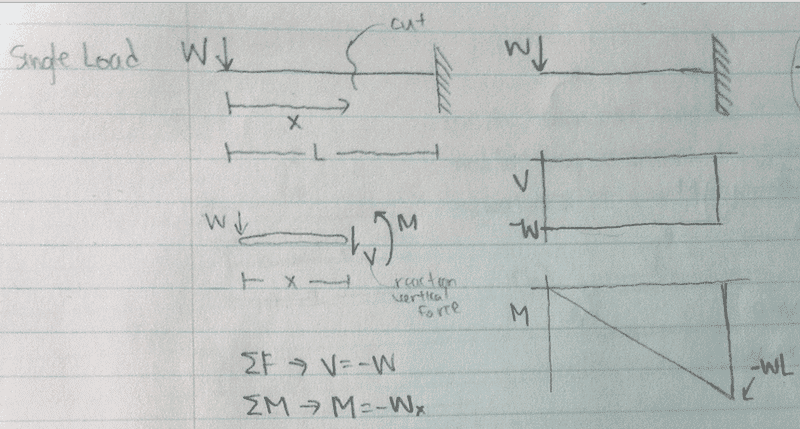 Single Load
W
cut
x
L
W
M
V
x
reaction
vertical
Force
ΣF → V=-W
ΣM → M=-Wx
W
V
-W
M
-WL